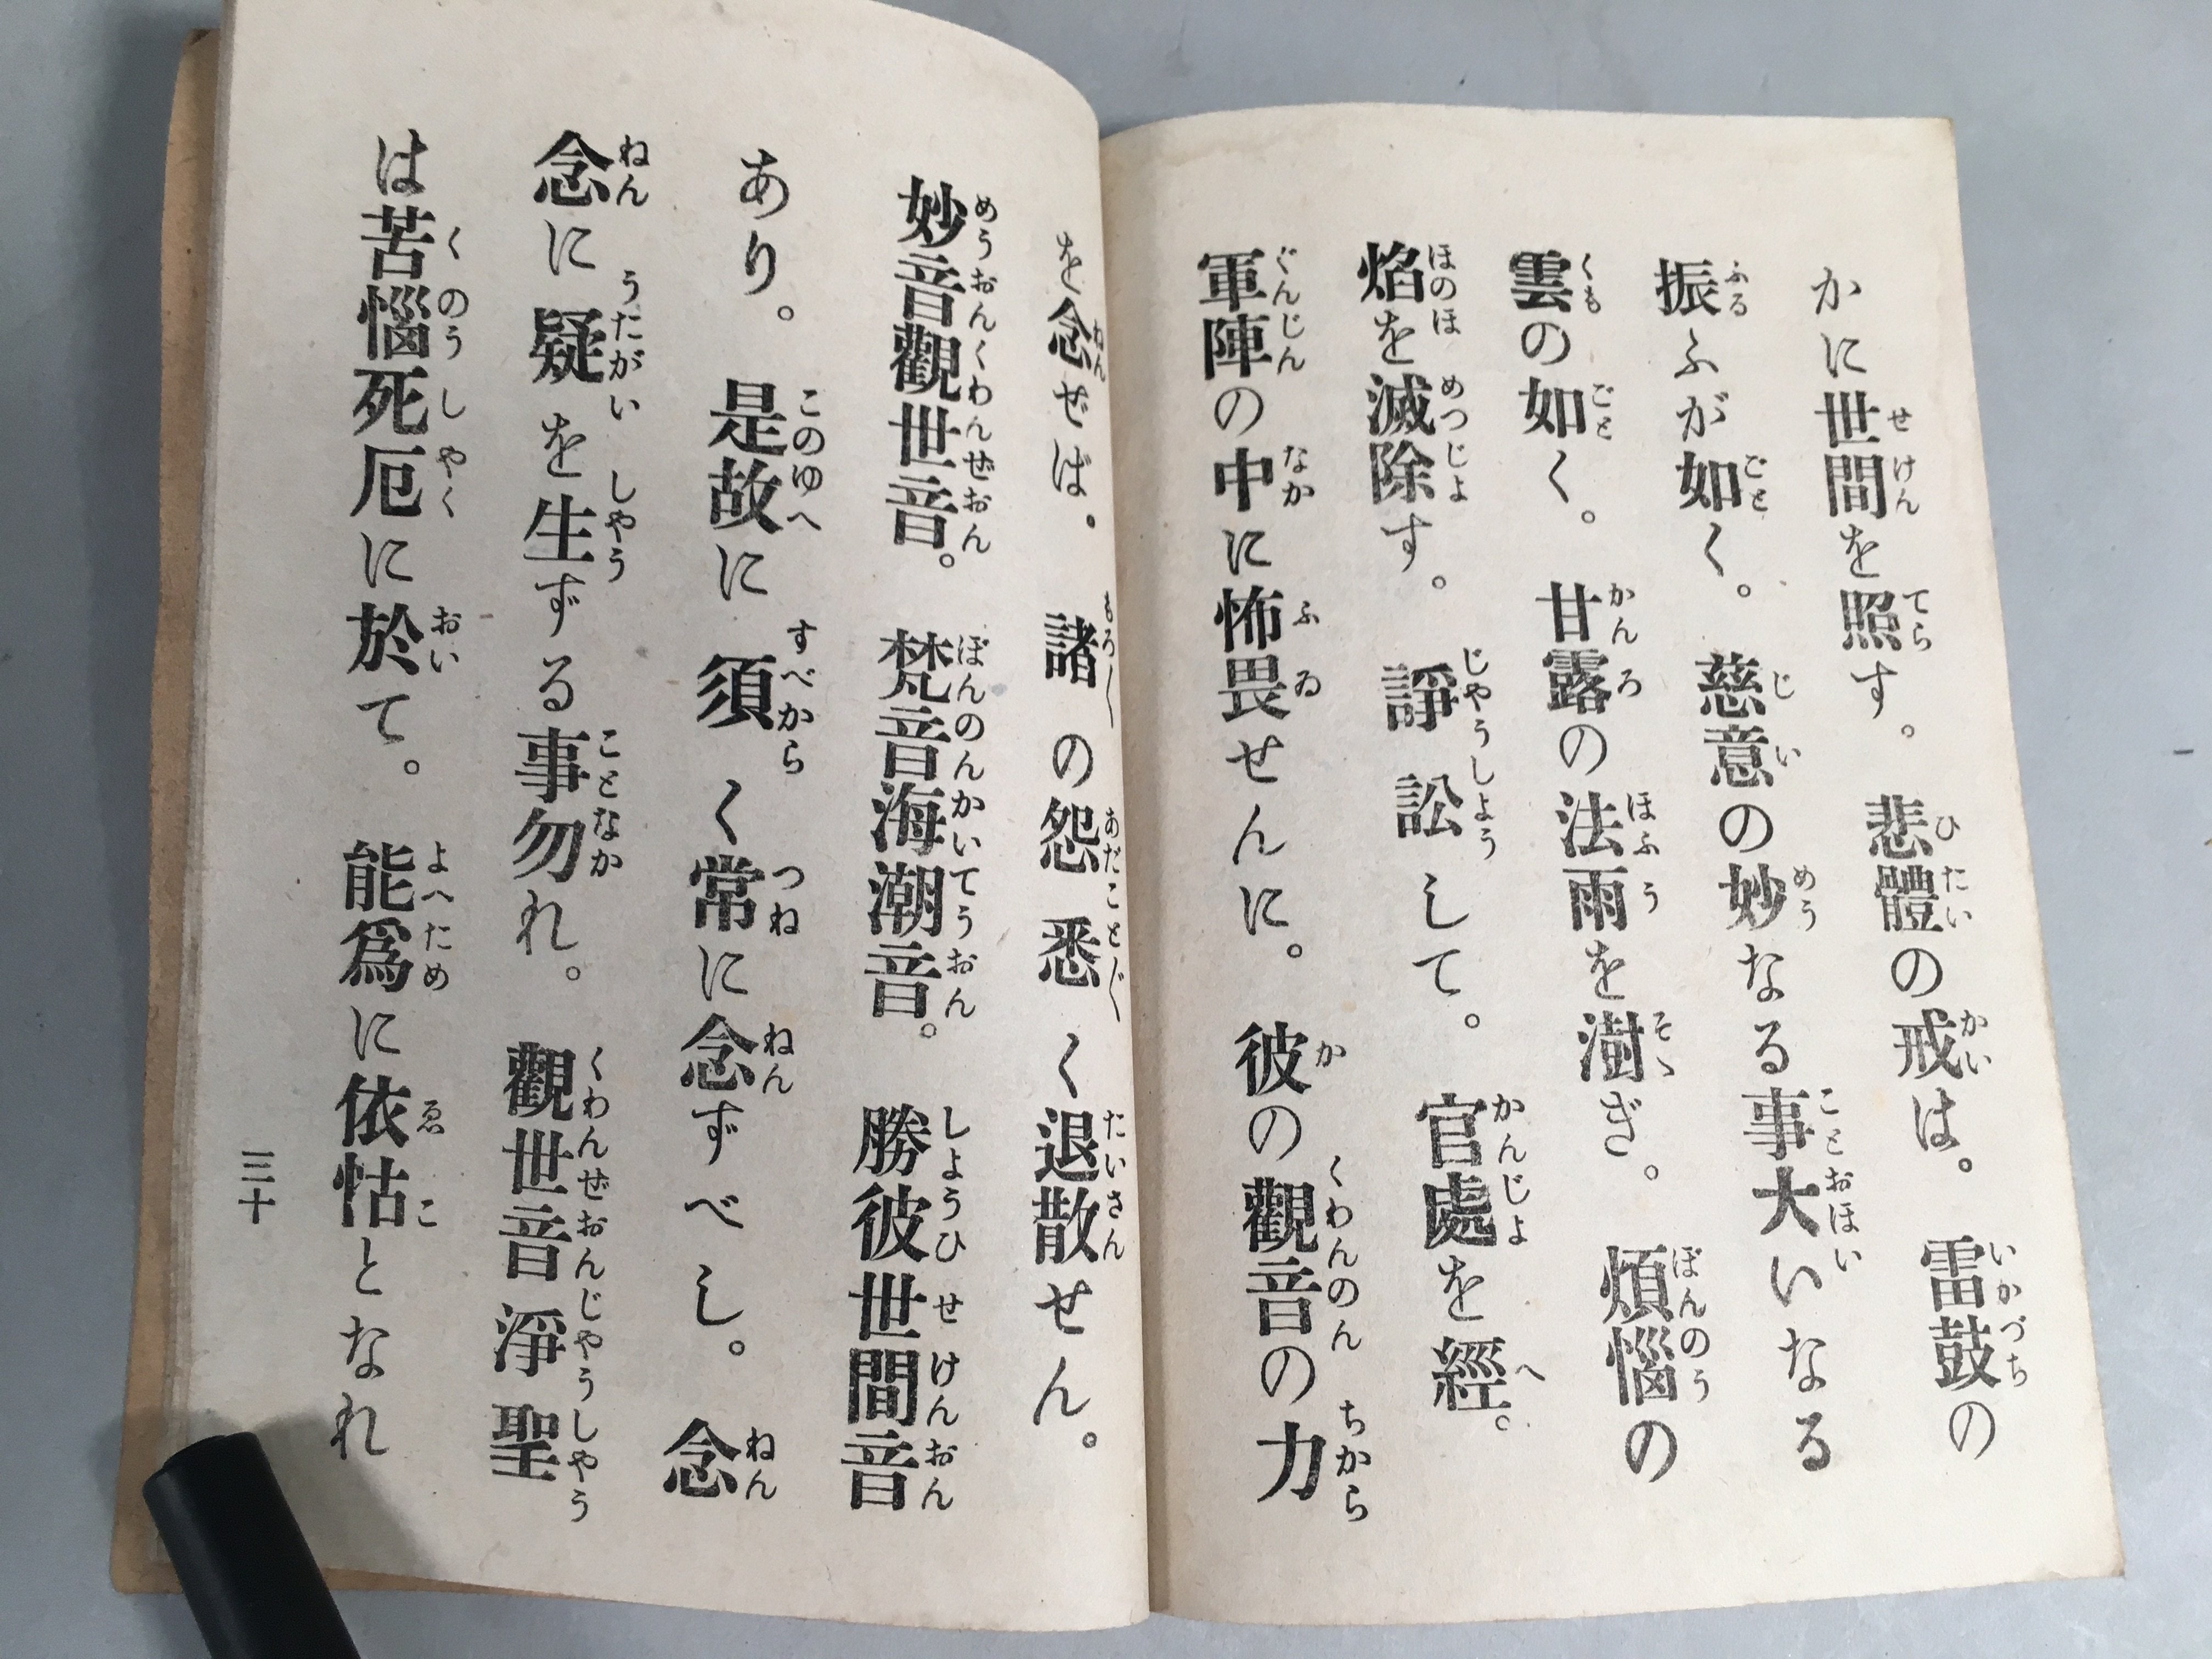 かに世間を照す。悲體の戒は。雷鼓の
振ふが如く。慈意の妙なる事大いなる
雲の如く。甘露の法雨を澍ぎ。煩惱の
焰を滅除す。諍訟して。官處を經。
軍陣の中に怖畏せんに。彼の觀音の力
を念ぜば。諸の怨悉く退散せん。
妙音觀世音。梵音海潮音。勝彼世間音
あり。是故に須く常に念ずべし。念
念に疑を生ずる事勿れ。觀世音淨聖
は苦惱死厄に於て。能爲に依怙となれ
三十